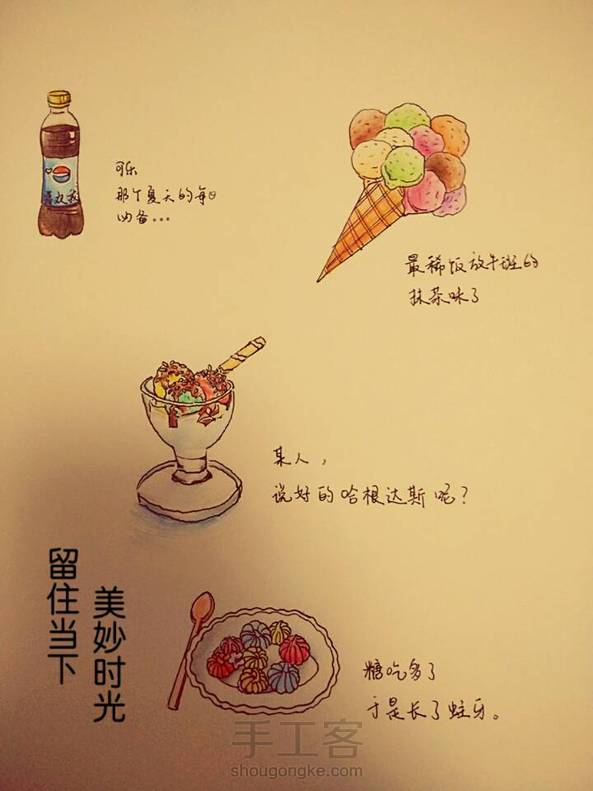 可乐
那个夏天的每日
必备...
最稀饭放牛斑的
抹茶味了
某人，
说好的哈根达斯呢？
留住当下
美妙时光
糖吃多了
于是长了蛀牙。
手工客
shougongke.com